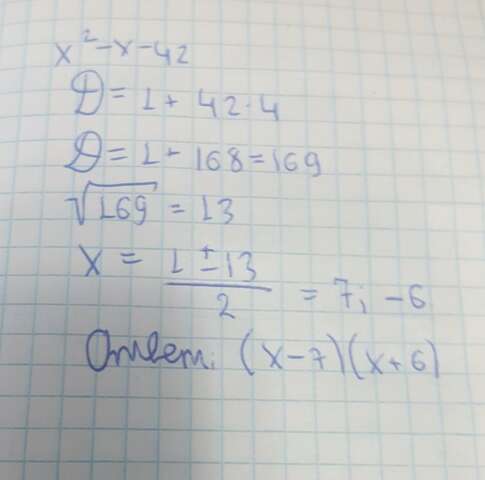 x² - x - 42
D = 1 + 42 · 4
D = 1 + 168 = 169
√169 = 13
x = (1 ± 13)/2 = 7; -6
Ответ: (x-7)(x+6)